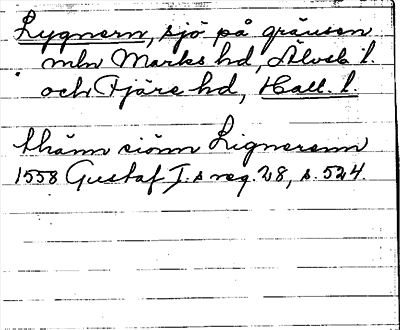 Lygnern, sjö på gränsen
mln Marks hd, Älvsb. l.
och Fjäre hd, Hall. l.
thänn siönn Lignerenn
1558 Gustaf I.s reg. 28, s. 524.